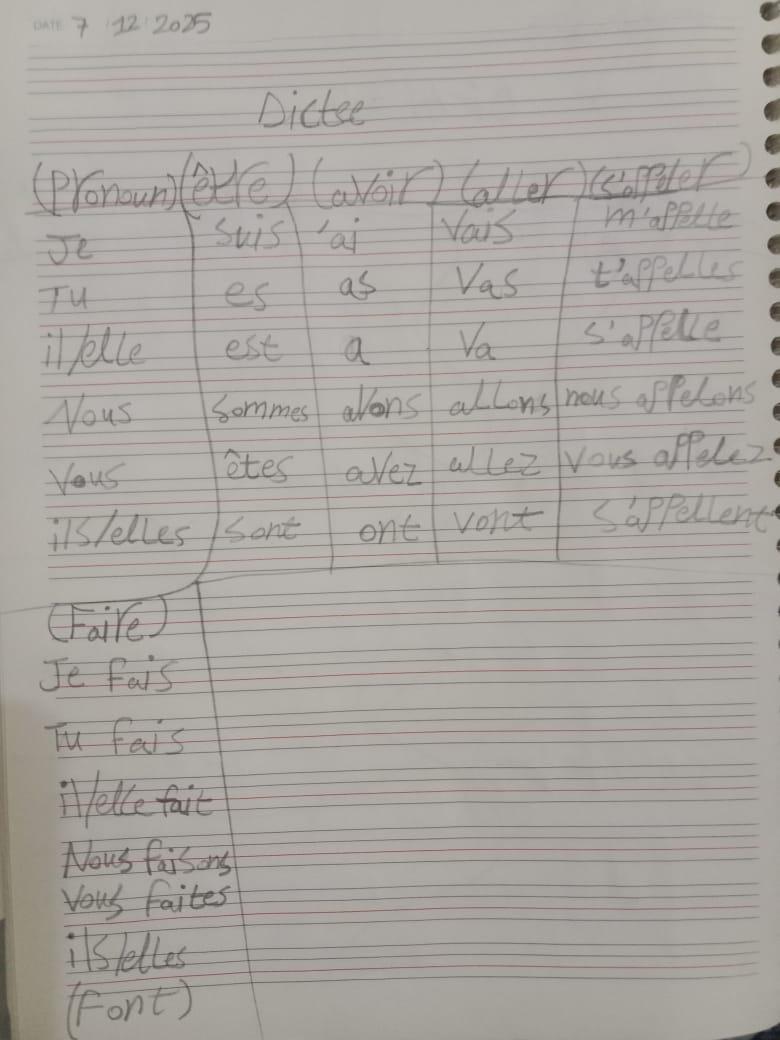 DATE 7 12 2025
Dictee
(Pronoun) (être) (avoir) (aller) (s'appeler)
Je suis 'ai Vais m'appelle
Tu es as Vas t'appelles
il/elle est a Va s'appelle
Nous sommes avons allons nous appelons
Vous êtes avez allez Vous appelez
ils/elles sont ont vont s'appellent
(Faire)
Je fais
Tu fais
il/elle fait
Nous faisons
Vous faites
ils/elles
(Font)